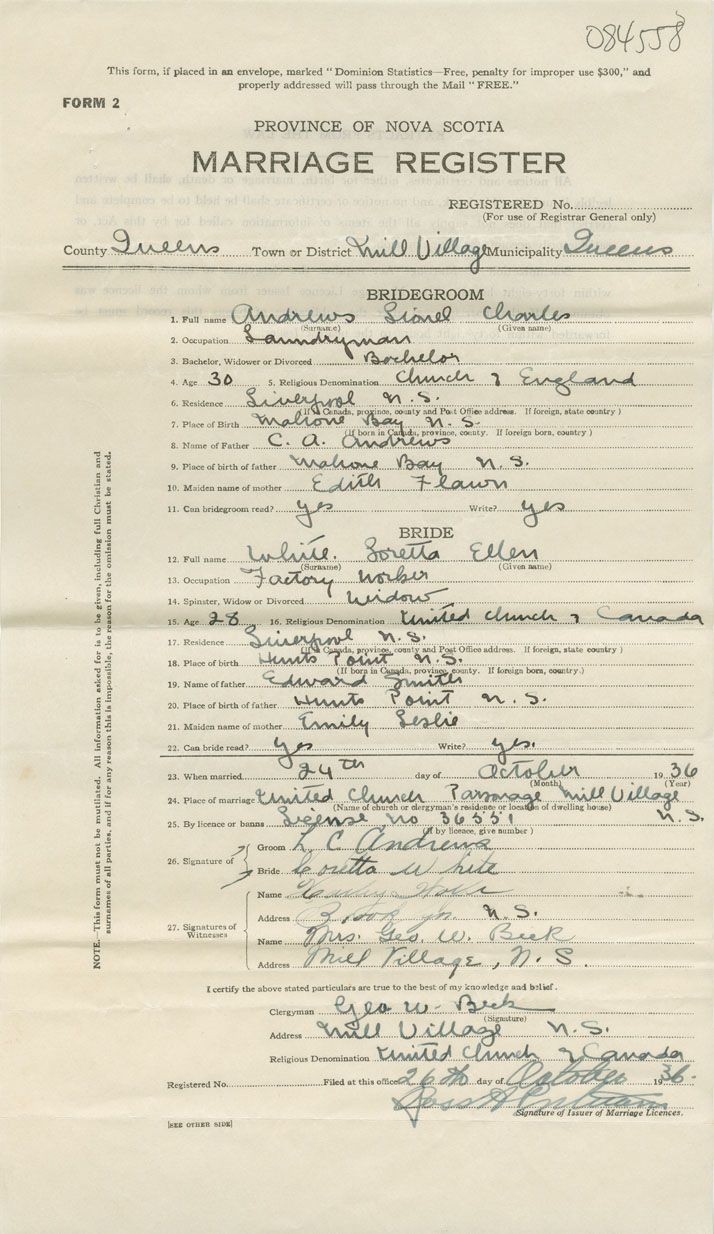 084558
This form, if placed in an envelope, marked "Dominion Statistics—Free, penalty for improper use $300," and
properly addressed will pass through the Mail "FREE."
FORM 2
PROVINCE OF NOVA SCOTIA
MARRIAGE REGISTER
REGISTERED No.
(For use of Registrar General only)
County Queens Town or District Mill Village Municipality Queens
BRIDEGROOM
1. Full name Andrews Lionel Charles
(Surname) (Given name)
2. Occupation Laundryman
3. Bachelor, Widower or Divorced Bachelor
4. Age 30 5. Religious Denomination Church of England
6. Residence Liverpool N.S.
(If Canada, province, county and Post Office address. If foreign, state country)
7. Place of Birth Mahone Bay N.S.
(If born in Canada, province, county. If foreign born, country)
8. Name of Father C. A. Andrews
9. Place of birth of father Mahone Bay N.S.
10. Maiden name of mother Edith Flawn
11. Can bridegroom read? yes Write? yes
BRIDE
12. Full name White. Loretta Ellen
(Surname) (Given name)
13. Occupation Factory worker
14. Spinster, Widow or Divorced Widow
15. Age 28 16. Religious Denomination United Church of Canada
17. Residence Liverpool N.S.
(If Canada, province, county and Post Office address. If foreign, state country)
18. Place of birth Hunts Point N.S.
(If born in Canada, province, county. If foreign born, country.)
19. Name of father Edward Smith
20. Place of birth of father Hunts Point N.S.
21. Maiden name of mother Emily Leslie
22. Can bride read? yes Write? yes.
23. When married 24th day of October 1936
(Month) (Year)
24. Place of marriage United Church Parsonage Mill Village
(Name of church or clergyman's residence or location of dwelling house)
N.S.
25. By licence or banns License no 36551
(If by licence, give number)
26. Signature of
Groom L. C. Andrews
Bride Loretta White
27. Signatures of Witnesses
Name
Address N.S.
Name Mrs. Geo. W. Beck
Address Mill Village, N.S.
I certify the above stated particulars are true to the best of my knowledge and belief.
Clergyman Geo W. Beck
(Signature)
Address Mill Village N.S.
Religious Denomination United Church of Canada
Registered No. Filed at this office 26th day of October 1936.
Signature of Issuer of Marriage Licences.
[SEE OTHER SIDE]
NOTE.—This form must not be mutilated. All information asked for is to be given, including full Christian and
surnames of all parties, and if for any reason this is impossible, the reason for the omission must be stated.